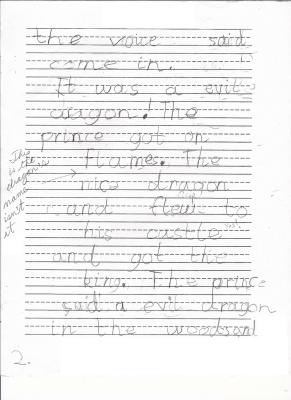 the voice said
come in.
It was a evil
dragon! The
prince got on
flames. The
nice dragon
and flew to
his castle
and got the
king. The prince
said a evil dragon
in the woods and
This
is the
dragon's
name
isn't
it
2.